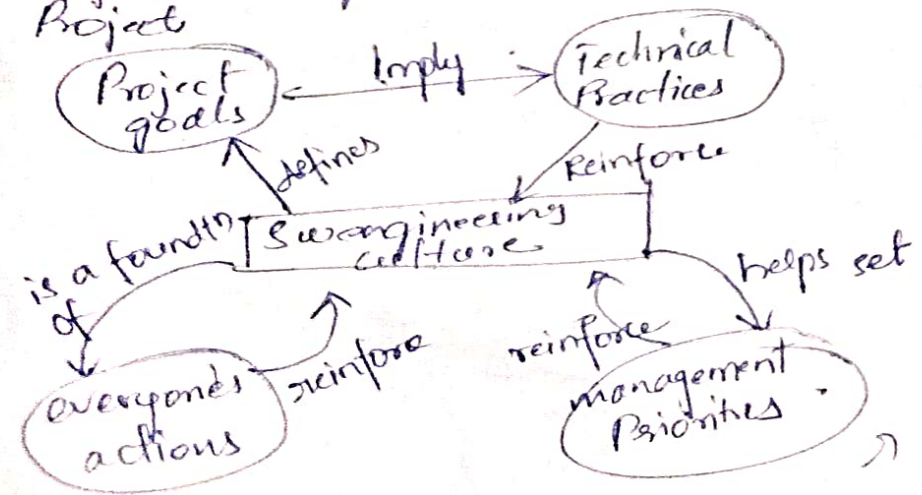 Project
Project goals
Imply
Technical Practices
defines
Reinforce
Sw engineering culture
is a foundtn of
helps set
reinfore
reinforce
everyone's actions
management Priorities